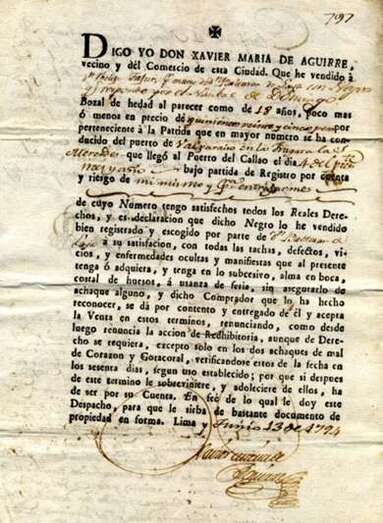 797
DIGO YO DON XAVIER MARIA DE AGUIRRE,
vecino y dél Comescio de esta Ciudad. Que he vendido à
un Negro
nombrado por el
Bozal de hedad al parecer como de 18 años, poco mas
ó menos en precio de quinientos veinte y cinco pesos
perteneciente à la Partida que en mayor número se ha con-
ducido del puerto de Valparaiso en la Fragata la
Mercedes que llegó al Puerto del Callao el dia 4 del
bajo partida de Registro por cuenta
y riesgo de mi mismo y
de cuyo Numero tengo satisfechos todos los Reales Dere-
chos, y es declaracion que dicho Negro lo he vendido
bien registrado y escogido por parte de
à su satisfacion, con todas las tachas, defectos, vi-
cios, y enfermedades ocultas y manifiestas que al presente
tenga ó adquiera, y tenga en lo subcesivo, alma en boca,
costal de huesos, á usanza de feria, sin asegurarlo de
achaque alguno, y dicho Comprador que lo ha hecho
reconocer, se dá por contento y entregado de él y acepta
la Venta en estos términos, renunciando, como desde
luego renuncia la accion de Redhibitoria, aunque de Dere-
cho se requiera, excepto solo en los dos achaques de mal
de Corazon y Gotacoral, verificandose estos de la fecha en
los sesenta dias, segun uso establecido; por que si despues
de este termino le sobreviniere, y adoleciere de ellos, ha
de ser por su Cuenta. En feé de lo qual le doy este
Despacho, para que le sirba de bastante documento de
propiedad en forma. Lima y Junio 13 de 1794
Aguirre